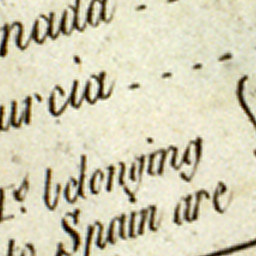 nada - -
urcia - - - -
Is. belonging
to Spain are